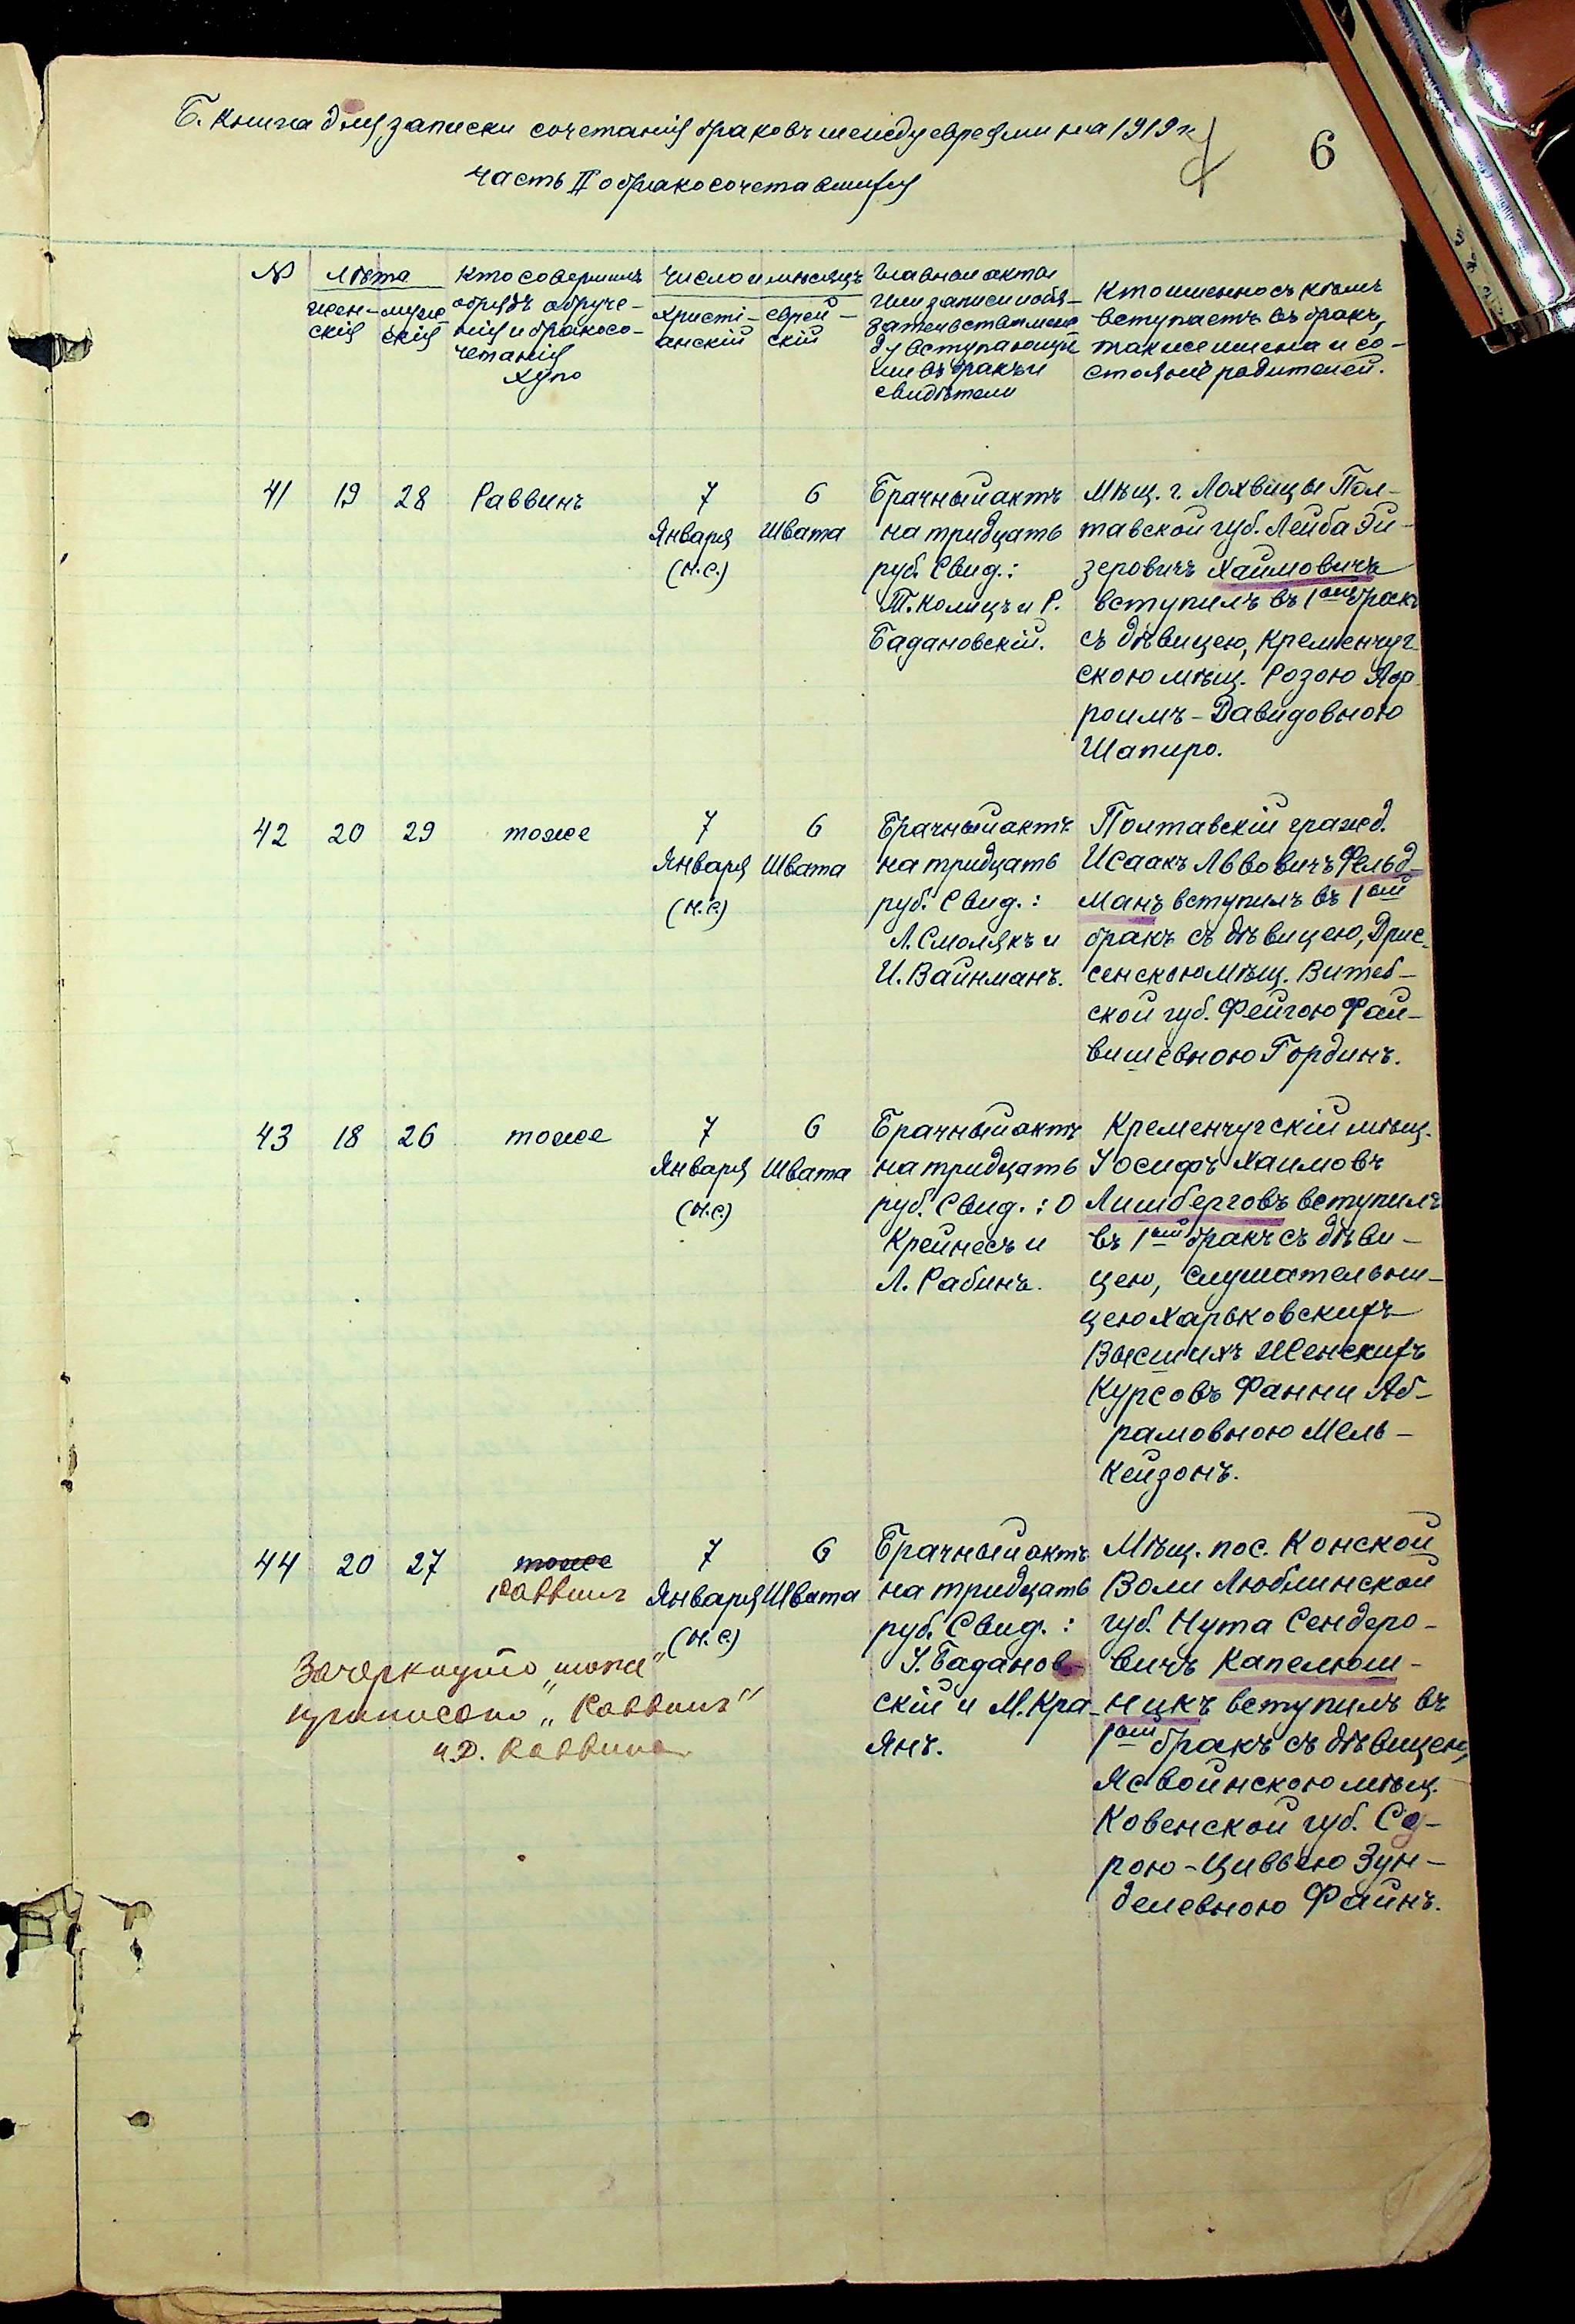 Б. Книга для записки сочетанія браковъ между евреями на 1919 г.
6
часть II о бракосочетавшихся
№
Лѣта
жен-
скія
муж-
скія
Кто совершилъ
обрядъ обруче-
нія и бракосо-
четанія
хупо
Число и мѣсяцъ
христі-
анскій
еврей-
скій
Главные акты
или записи и обя-
зательства меж-
ду вступающи-
ми въ бракъ и
свидѣтели
Кто именно съ кѣмъ
вступаетъ въ бракъ,
также имена и со-
стояніе родителей.
41 19 28 Раввинъ
7
Января
(н.с.)
6
Швата
Брачный актъ
на тридцать
руб. Свид.:
Т. Колицъ и Р.
Бадановскій.
Мѣщ. г. Лохвицы Пол-
тавской губ. Лейба Эй-
зеровичъ Хаимовичъ
вступилъ въ 1ый бракъ
съ дѣвицею, Кременчуг-
скою мѣщ. Розою Аф-
роимъ-Давидовною
Шапиро.
42 20 29 тоже
7
Января
(н.с.)
6
Швата
Брачный актъ
на тридцать
руб. Свид.:
Л. Смолякъ и
И. Вайнманъ.
Полтавскій гражд.
Исаакъ Львовичъ Фельд-
манъ вступилъ въ 1ый
бракъ съ дѣвицею, Дрис-
сенскою мѣщ. Витеб-
ской губ. Фейгою Фай-
вишевною Гординъ.
43 18 26 тоже
7
Января
(н.с.)
6
Швата
Брачный актъ
на тридцать
руб. Свид.: О
Крейнесъ и
Л. Рабинъ.
Кременчугскій мѣщ.
Іосифъ Хаимовъ
Лишберговъ вступилъ
въ 1ый бракъ съ дѣви-
цею, слушательни-
цею Харьковскихъ
Высшихъ Женскихъ
Курсовъ Фанни Аб-
рамовною Мель-
кейзонъ.
44 20 27 тоже
Раввинъ
7
Января
(н.с.)
6
Швата
Зачеркнуто „тоже"
написано „Раввинъ"
и.д. Раввина
Брачный актъ
на тридцать
руб. Свид.:
І. Баданов-
скій и М. Кра-
янъ.
Мѣщ. пос. Конской
Воли Люблинской
губ. Нута Сендеро-
вичъ Капелюш-
никъ вступилъ въ
1ый бракъ съ дѣвицею,
Ясвойнскою мѣщ.
Ковенской губ. Со-
рою-Цивьею Зун-
делевною Файнъ.